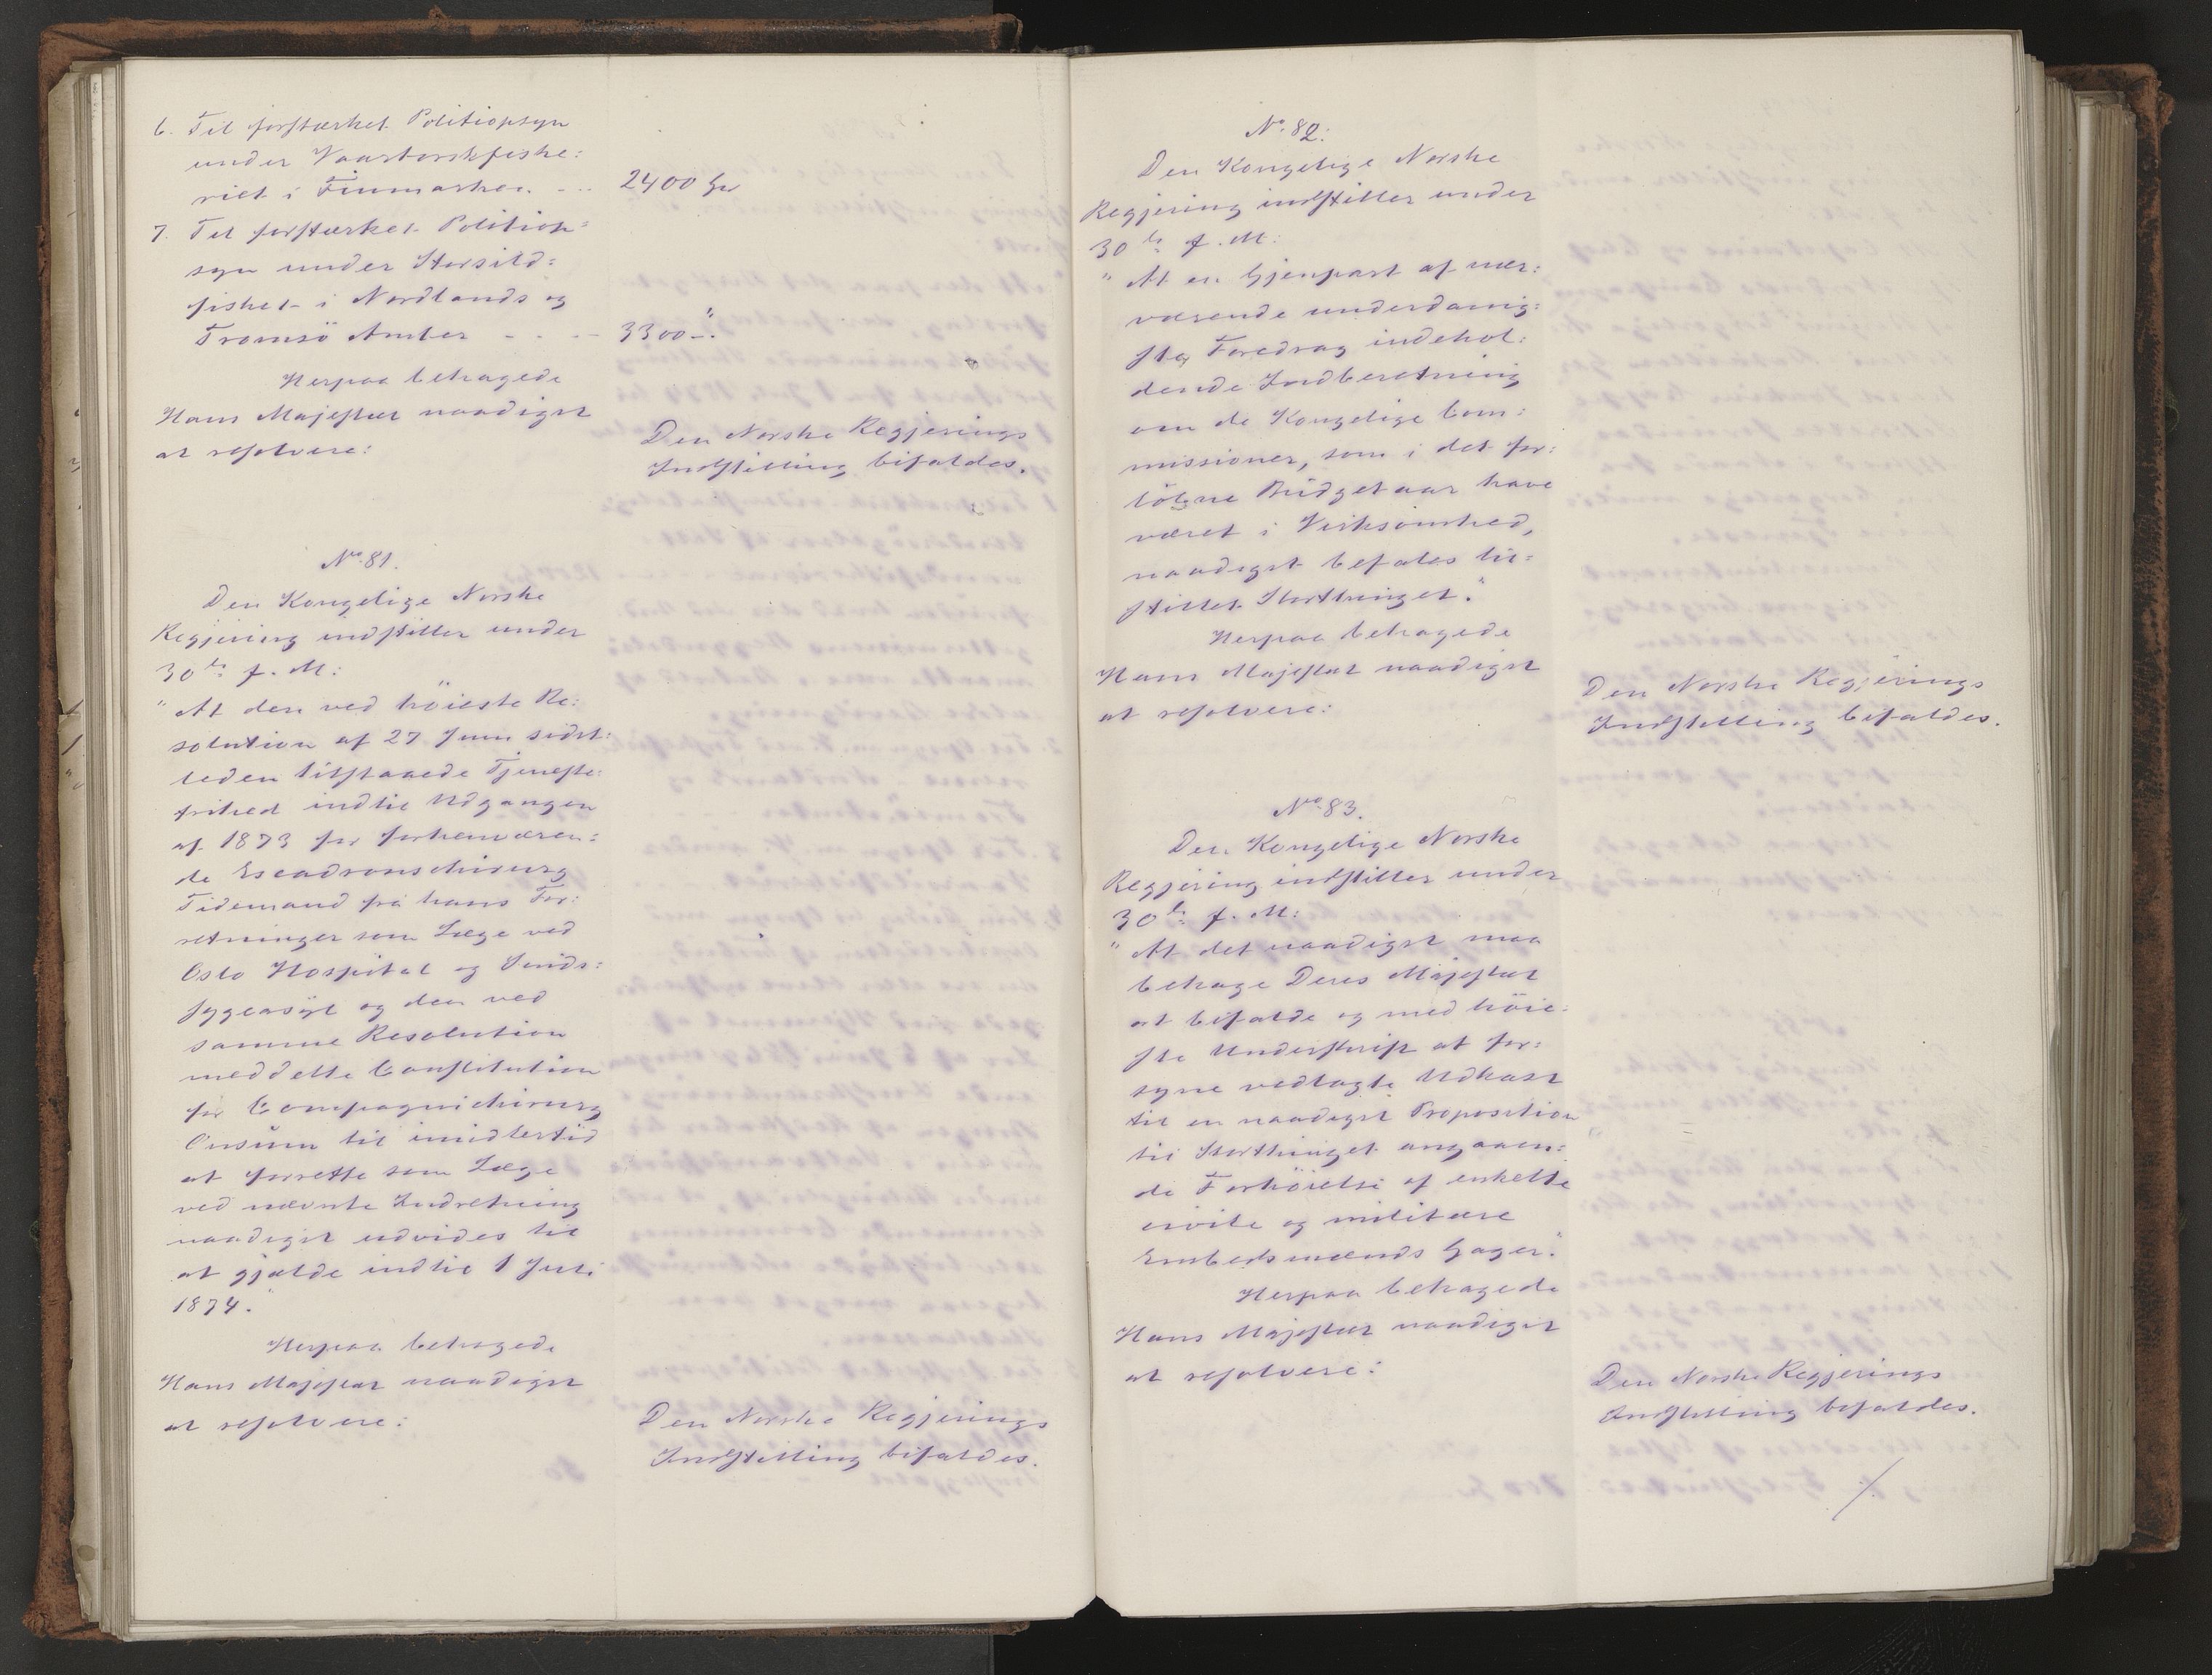 6. Til forstærket Politiopsyn
under Vaartorskfiske:
riet i Finmarken. - - - 2400 Spd
7. Til forstærket Politiop=
syn under Storsild=
fisket i Nordlands og
Tromsö Amter - - - - 3300 -"-
Herpaa behagede
Hans Majestæt naadigst
at resolvere:
Den Norske Regjerings
Indstilling bifaldes.
No 81.
Den Kongelige Norske
Regjering indstiller under
30te f. M:
"At den ved höieste Re:
solution af 27 Juni sidst:
leden tilstaaede Tjeneste:
frihed indtil Udgangen
af 1873 for forhenværen:
de Escadronschirurg
Tidemand fra hans For:
retninger som Læge ved
Oslo Hospital og Sinds:
sygeasyl og den ved
samme Resolution
meddelte Constitution
for Compagnichirurg
Onsum til imidlertid
at forrette som Læge
ved nævnte Indretning
naadigst udvides til
at gjælde indtil 1 Juli
1874."
Herpaa behagede
Hans Majestæt naadigst
at resolvere:
Den Norske Regjerings
Indstilling bifaldes.
No. 82:
Den Kongelige Norske
Regjering indstiller under
30te f. M:
"At en Gjenpart af nær:
værende underdanig:
ste Foredrag indehol:
dende Indberetning
om de Kongelige Com:
missioner, som i det for:
löbne Budgetaar have
været i Virksomhed,
naadigst befales til=
stillet Storthinget."
Herpaa behagede
Hans Majestæt naadigst
at resolvere:
Den Norske Regjerings
Indstilling bifaldes.
No 83.
Den Kongelige Norske
Regjering indstiller under
30te f. M:
"At det naadigst maa
behage Deres Majestæt
at bifalde og med höie:
ste Underskrift at for:
syne vedlagte Udkast
til en naadigst Proposition
til Storthinget angaaen:
de Forhöielse af enkelte
civile og militære
Embedsmænds Gager."
Herpaa behagede
Hans Majestæt naadigst
at resolvere:
Den Norske Regjerings
Indstilling bifaldes.